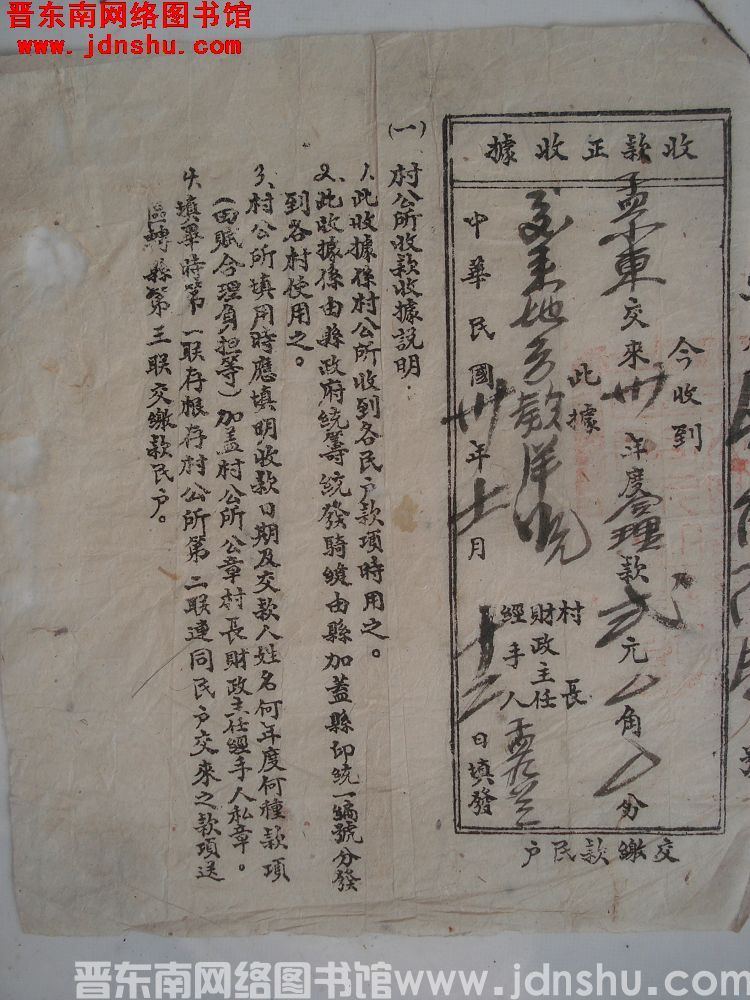 晋东南网络图书馆
www.jdnshu.com
收款正收據
今收到
交來卅年度合理款弍元角分
此據
中華民國卅年十一月十二日填發
村長
財政主任
經手人
交繳款民戶
(一)村公所收款收據説明．
1、此收據係村公所收到各民戶款項時用之。
2、此收據係由縣政府統籌統發騎縫由縣加蓋縣印統一編號分發
到各村使用之。
3、村公所填用時應填明收款日期及交款人姓名何年度何種款項
(田賦合理負担等)加盖村公所公章村長財政主任經手人私章。
4、填畢時第一联存根存村公所第二联連同民戶交來之款項送
區轉縣第三联交繳款民戶。
晋东南网络图书馆www.jdnshu.com